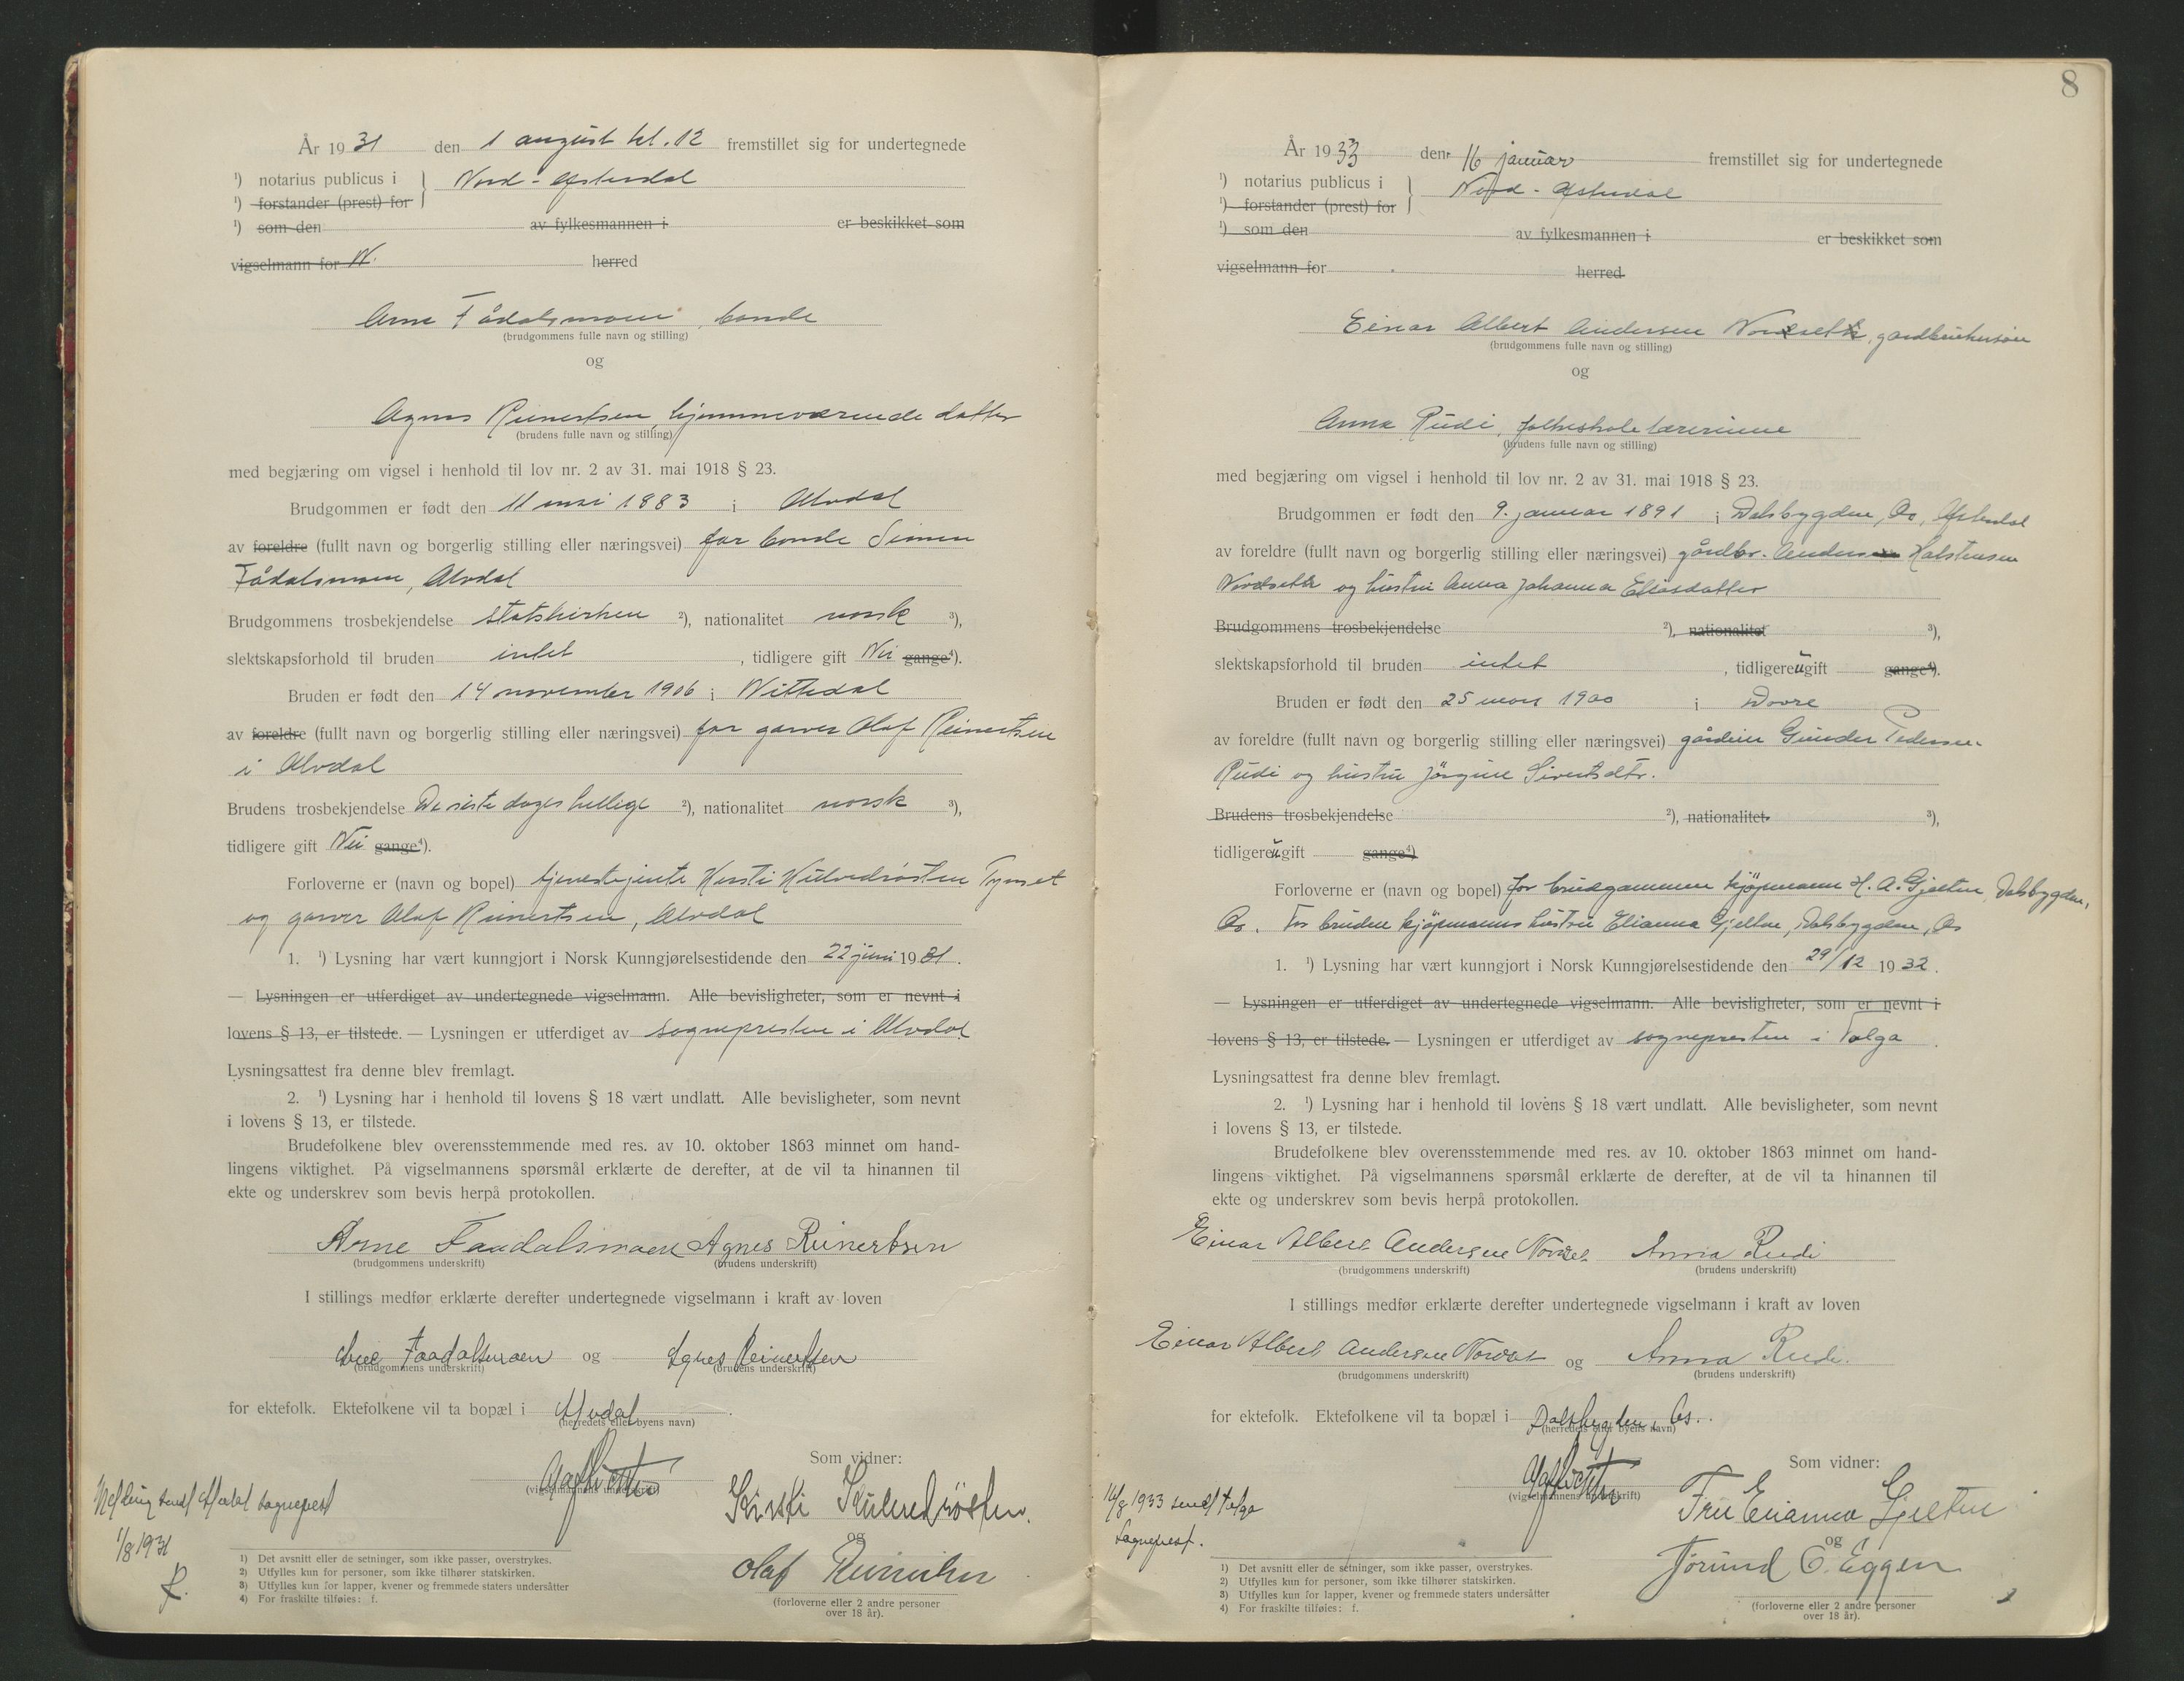 År 1931 den 1 august kl. 12 fremstillet sig for undertegnede
¹) notarius publicus i } Nord-Østerdal
¹) forstander (prest) for
¹) som den av fylkesmannen i er beskikket som
vigselmann for N. herred
Arne Fådalsmoen, bonde
(brudgommens fulle navn og stilling)
og
Agnes Reinertsen, hjemmeværende datter
(brudens fulle navn og stilling)
med begjæring om vigsel i henhold til lov nr. 2 av 31. mai 1918 § 23.
Brudgommen er født den 11 mai 1883 i Alvdal
av foreldre (fullt navn og borgerlig stilling eller næringsvei) far bonde Simen
Fådalsmoen, Alvdal
Brudgommens trosbekjendelse statskirken ²), nationalitet norsk ³),
slektskapsforhold til bruden intet, tidligere gift Nei gange⁴).
Bruden er født den 14 november 1906 i Nittedal
av foreldre (fullt navn og borgerlig stilling eller næringsvei) far garver Olaf Reinertsen
i Alvdal
Brudens trosbekjendelse De siste dages hellige ²), nationalitet norsk ³),
tidligere gift Nei gange⁴).
Forloverne er (navn og bopel) tjenestejente Kirsti Tynset
og garver Olaf Reinertsen, Alvdal
1. ¹) Lysning har vært kunngjort i Norsk Kunngjørelsestidende den 22 juni 1931.
— Lysningen er utferdiget av undertegnede vigselmann. Alle bevisligheter, som er nevnt i
lovens § 13, er tilstede. — Lysningen er utferdiget av sognepresten i Alvdal.
Lysningsattest fra denne blev fremlagt.
2. ¹) Lysning har i henhold til lovens § 18 vært undlatt. Alle bevisligheter, som nevnt
i lovens § 13, er tilstede.
Brudefolkene blev overensstemmende med res. av 10. oktober 1863 minnet om hand-
lingens viktighet. På vigselmannens spørsmål erklærte de derefter, at de vil ta hinannen til
ekte og underskrev som bevis herpå protokollen.
Arne Faadalsmoen Agnes Reinertsen
(brudgommens underskrift) (brudens underskrift)
I stillings medfør erklærte derefter undertegnede vigselmann i kraft av loven
Arne Faadalsmoen og Agnes Reinertsen
(brudgommens underskrift) (brudens underskrift)
for ektefolk. Ektefolkene vil ta bopæl i Alvdal.
(herredets eller byens navn)
Som vidner:
(vigselmannens underskrift)
Kirsti
og
Olaf Reinertsen
(forloverne eller 2 andre personer
over 18 år).
Melding sendt Alvdal sogneprest
1/8 1931
1) Det avsnitt eller de setninger, som ikke passer, overstrykes.
2) Utfylles kun for personer, som ikke tilhører statskirken.
3) Utfylles kun for lapper, kvener og fremmede staters undersåtter
4) For fraskilte tilføies: f.
8
År 1933 den 16 januar fremstillet sig for undertegnede
¹) notarius publicus i } Nord-Østerdal
¹) forstander (prest) for
¹) som den av fylkesmannen i er beskikket som
vigselmann for herred.
Einar Albert Andersen Nordseth, gardbrukersøn
(brudgommens fulle navn og stilling)
og
Anna Rudi, folkeskolelærerinne
(brudens fulle navn og stilling)
med begjæring om vigsel i henhold til lov nr. 2 av 31. mai 1918 § 23.
Brudgommen er født den 9. januar 1891 i Dalsbygden, Os, Østerdal
av foreldre (fullt navn og borgerlig stilling eller næringsvei) gårdbr. Anders Halstensen
Nordseth og hustru Anna Johanna Eliasdatter
Brudgommens trosbekjendelse ²), nationalitet ³),
slektskapsforhold til bruden intet, tidligere ugift gange⁴).
Bruden er født den 25 mars 1900 i Dovre
av foreldre (fullt navn og borgerlig stilling eller næringsvei) gårdeier Gunder Pedersen
Rudi og hustru Jörgine Sivertsdtr.
Brudens trosbekjendelse ²), nationalitet ³),
tidligere ugift gange⁴)
Forloverne er (navn og bopel) for brudgommen kjøpmann H. A. Gjelten, Dalsbygden,
Os. For bruden kjøpmanns hustru Elianna Gjelten, Dalsbygden, Os
1. ¹) Lysning har vært kunngjort i Norsk Kunngjørelsestidende den 29/12 1932.
— Lysningen er utferdiget av undertegnede vigselmann. Alle bevisligheter, som er nevnt i
lovens § 13, er tilstede. — Lysningen er utferdiget av sognepresten i Tolga.
Lysningsattest fra denne blev fremlagt.
2. ¹) Lysning har i henhold til lovens § 18 vært undlatt. Alle bevisligheter, som nevnt
i lovens § 13, er tilstede.
Brudefolkene blev overensstemmende med res. av 10. oktober 1863 minnet om hand-
lingens viktighet. På vigselmannens spørsmål erklærte de derefter, at de vil ta hinannen til
ekte og underskrev som bevis herpå protokollen.
Einar Albert Andersen Nordset Anna Rudi
(brudgommens underskrift) (brudens underskrift)
I stillings medfør erklærte derefter undertegnede vigselmann i kraft av loven
Einar Albert Andersen Nordset og Anna Rudi.
(brudgommens underskrift) (brudens underskrift)
for ektefolk. Ektefolkene vil ta bopæl i Dalsbygden, Os.
(herredets eller byens navn)
Som vidner:
(vigselmannens underskrift)
Fru Elianna Gjelten
og
Jorund O. Eggen
(forloverne eller 2 andre personer
over 18 år).
1933 sendt Tolga
sogneprest.
1) Det avsnitt eller de setninger, som ikke passer, overstrykes.
2) Utfylles kun for personer, som ikke tilhører statskirken.
3) Utfylles kun for lapper, kvener og fremmede staters undersåtter
4) For fraskilte tilføies: f.